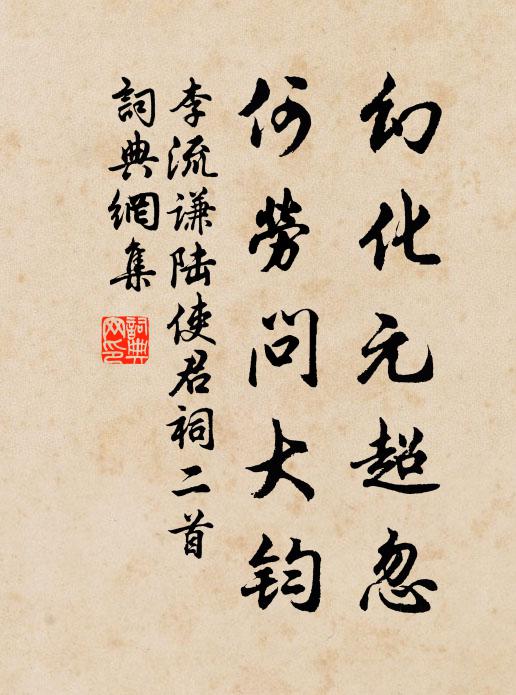 幻化元超忽
何劳问大钧
李流谦陆使君祠二首
词典网集
詞典
网印